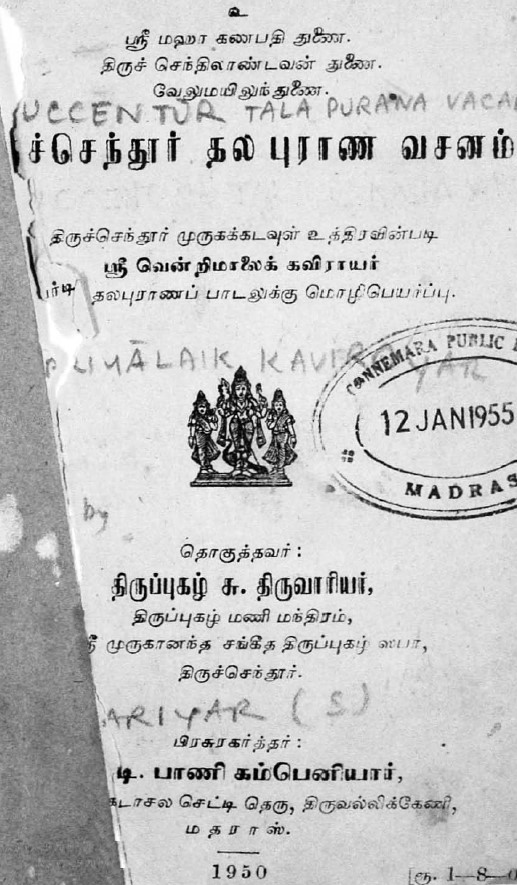 உ
ஸ்ரீ மஹா கணபதி துணை.
திருச் செந்திலாண்டவன் துணை.
வேலுமயிலுந்துணை.
UCCENTUR TALA PURANA VACA
ச்செந்தூர் தல புராண வசனம்
திருச்செந்தூர் முருகக்கடவுள் உத்திரவின்படி
ஸ்ரீ வென்றிமாலைக் கவிராயர்
தலபுராணப் பாடலுக்கு மொழிபெயர்ப்பு.
RIMĀLAIK KAVIRAYAR
CONNEMARA PUBLIC
12 JAN 1955
MADRAS
by
தொகுத்தவர் :
திருப்புகழ் சு. திருவாரியர்,
திருப்புகழ் மணி மந்திரம்,
ஸ்ரீ முருகானந்த சங்கீத திருப்புகழ் ஸபா,
திருச்செந்தூர்.
ARIYAR (S)
பிரசுரகர்த்தர் :
டி. பாணி கம்பெனியார்,
கடாசல செட்டி தெரு, திருவல்லிக்கேணி,
மதராஸ்.
1950
[ரூ. 1—8—0